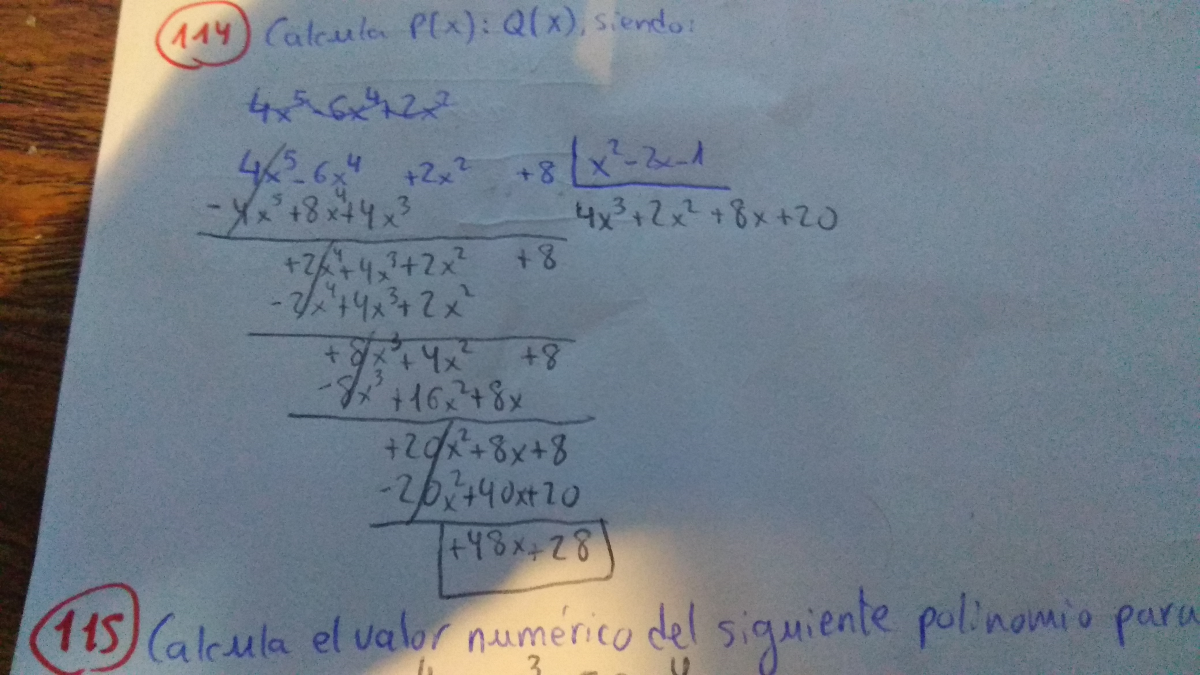 114 Calcula P(x): Q(x), siendo:
4x⁵-6x⁴+2x²
4x⁵-6x⁴ +2x² +8 | x²-2x-1
-4x⁵+8x⁴+4x³ 4x³+2x²+8x+20
+2x⁴+4x³+2x² +8
-2x⁴+4x³+2x²
+8x³+4x² +8
-8x³+16x²+8x
+20x²+8x+8
-20x²+40x+20
+48x+28
115 Calcula el valor numérico del siguiente polinomio para